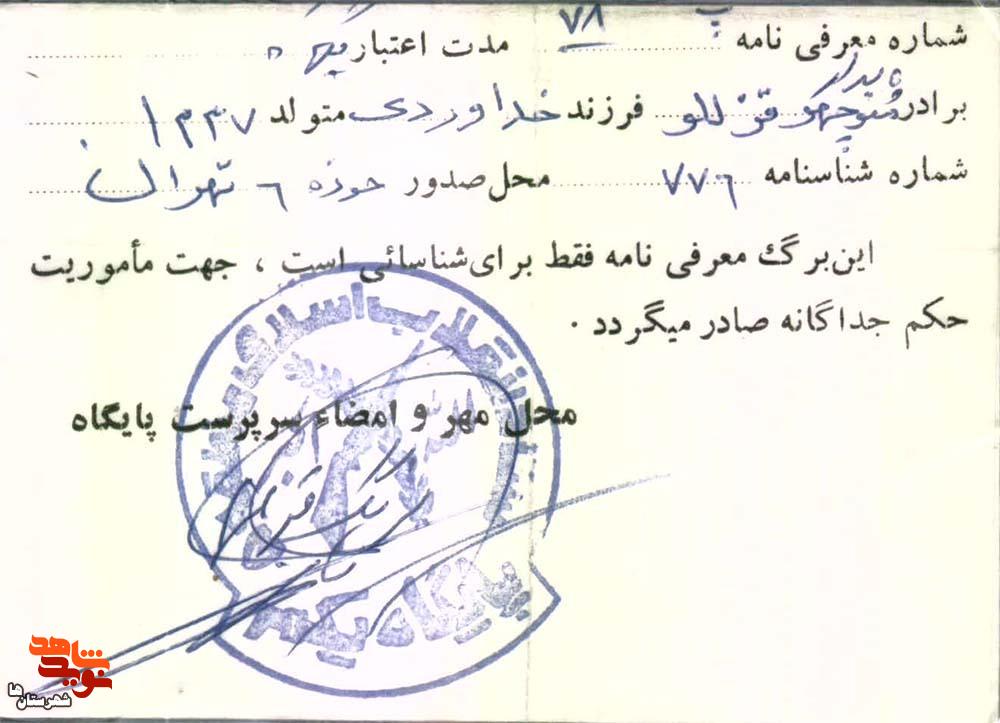 شماره معرفی نامه ب ۷۸ مدت اعتبار
پایدار
برادر منوچهر قزللو فرزند خداوردی متولد ۱۳۳۷
شماره شناسنامه ۷۷۶ محل صدور حوزه ۶ تهران
این برگ معرفی نامه فقط برای شناسائی است ، جهت مأموریت
حکم جداگانه صادر میگردد .
محل مهر و امضاء سرپرست پایگاه
انقلاب اسلامی
پایگاه یکم
نوید شاهد
شهرستان ها